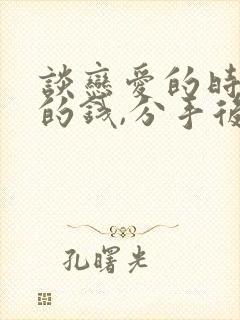 談戀愛的時
的錢,分手後
孔曙光